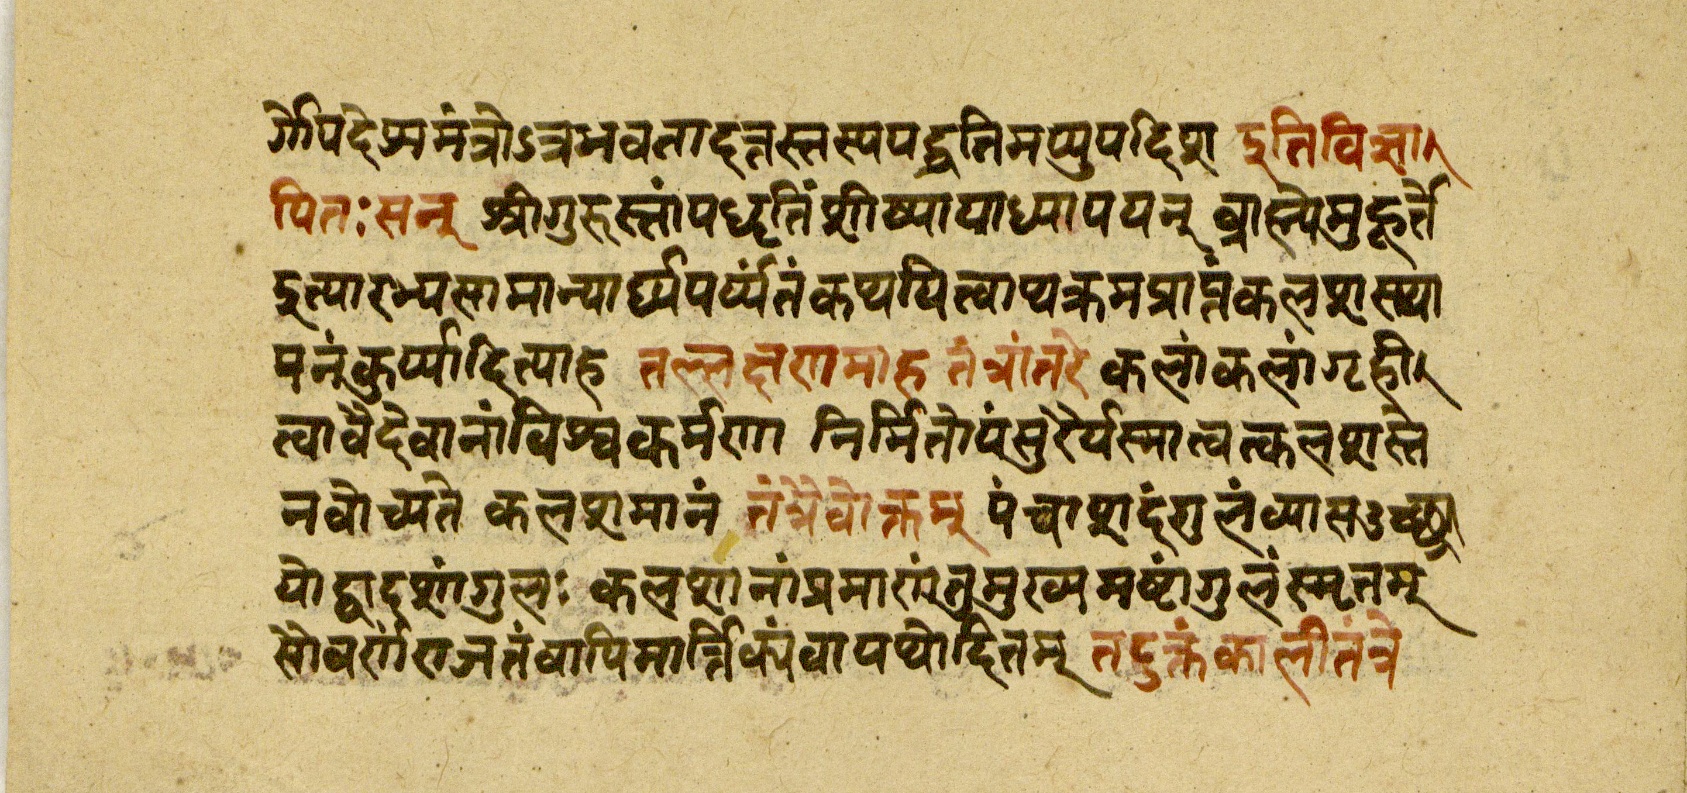 र्गोपदेश्यमंत्रोऽत्रभवतादत्तस्तस्यपद्धतिमप्युपदिश इतिविज्ञा
पितःसन् श्रीगुरुस्तांपधृतिंशीष्यायाध्यापयन् ब्राह्म्येमुहूर्त्ते
इत्यारभ्यसामान्यार्घ्यपर्य्यंतंकथयित्वाथक्रमप्राप्तंकलशस्था
पनंकुर्य्यादित्याह तल्लक्षणमाह तंत्रांतरे कलांकलांगृही
त्वावैदेवानांविश्वकर्मणा निर्मितोयंसुरैर्यस्मात्वत्कलशस्ते
नवोच्यते कलशमानं तंत्रैवोक्तम् पंचाशदंगुलंव्यासउच्छ्रा
योद्वादशांगुलः कलशानांप्रमाणंतुमुख्यमष्टांगुलंस्मृतम्
सौवर्णंराजतंवापिमार्त्तिक्यंवायथोदितम् तदुक्तंकालीतंत्रे